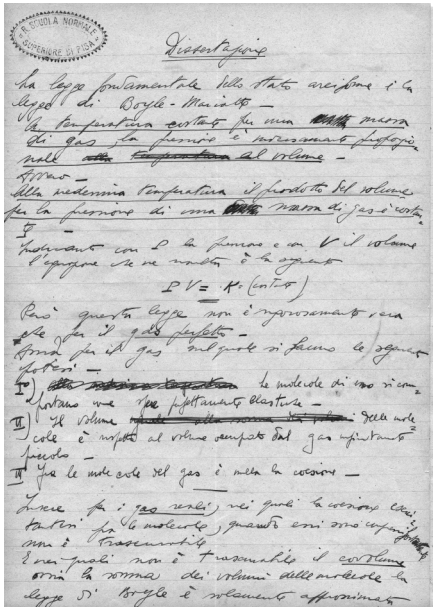 R. SCUOLA NORMALE
SUPERIORE DI PISA
Dissertazione
La legge fondamentale dello stato aeriforme è la
legge di Boyle-Mariotte —
A temperatura costante per una massa
di gas la pressione è inversamente proporzio=
nale al volume —
Ovvero —
Alla medesima temperatura il prodotto del volume
per la pressione di una massa di gas è costan=
te —
Indicando con P la pressione e con V il volume
l'equazione che ne risulta è la seguente
P V = K (costante)
Però questa legge non è rigorosamente vera
che per il gas perfetto —
ossia per il gas nel quale si fanno le seguenti
ipotesi —
I) Le molecole di uno si com=
portano come perfettamente elastiche —
II) Il volume delle mole=
cole è rispetto al volume occupato dal gas infinitamente
piccolo —
III Fra le molecole del gas è nulla la coesione —
Invece per i gas reali, nei quali la coesione
fra le molecole, quando essi sono
non è trascurabile
E nei quali non è trascurabile il covolume
ossia la somma dei volumi delle molecole la
legge di Boyle è solamente approssimata